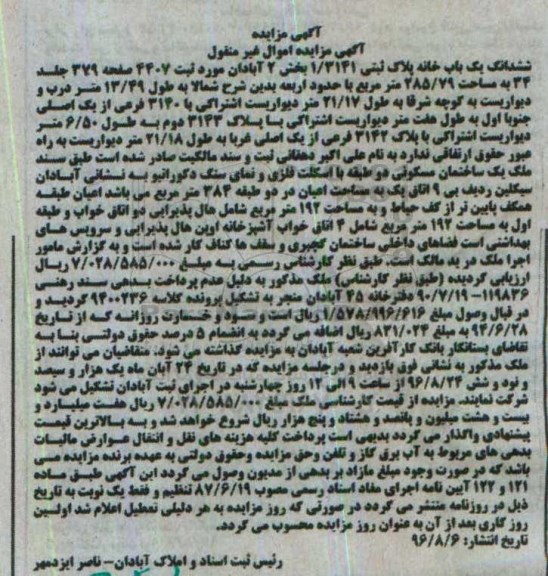 آگهی مزایده
آگهی مزایده اموال غیر منقول
ششدانگ یک باب خانه پلاک ثبتی ۱/۳۱۴۱ بخش ۲ آبادان مورد ثبت ۴۴۰۷ صفحه ۳۷۹ جلد
۳۴ به مساحت ۲۸۵/۷۹ متر مربع با حدود اربعه بدین شرح شمالا به طول ۱۳/۴۹ متر درب و
دیواریست به کوچه شرقا به طول ۲۱/۱۷ متر دیواریست اشتراکی با ۳۱۴۰ فرعی از یک اصلی
جنوبا اول به طول هفت متر دیواریست اشتراکی با پلاک ۳۱۴۳ دوم به طول ۶/۵۰ متر
دیواریست اشتراکی با پلاک ۳۱۴۲ فرعی از یک اصلی غربا به طول ۲۱/۱۸ متر دیواریست به راه
عبور حقوق ارتفاقی ندارد به نام علی اکبر دهقانی ثبت و سند مالکیت صادر شده است طبق سند
ملک یک ساختمان مسکونی دو طبقه با اسکلت فلزی و نمای سنگ دکورانیو به نشانی آبادان
سیکلین ردیف بی ۹ اتاق یک به مساحت اعیان در دو طبقه ۳۸۴ متر مربع می باشد اعیان طبقه
همکف پایین تر از کف حیاط و به مساحت ۱۹۲ متر مربع شامل هال پذیرایی دو اتاق خواب و طبقه
اول به مساحت ۱۹۲ متر مربع شامل ۴ اتاق خواب آشپزخانه اوپن هال پذیرایی و سرویس های
بهداشتی است فضاهای داخلی ساختمان گچبری و سقف ها کناف کار شده است و به گزارش مامور
اجرا ملک در ید مالک است طبق نظر کارشناس رسمی به مبلغ ۷/۰۲۸/۵۸۵/۰۰۰ ریال
ارزیابی گردیده (طبق نظر کارشناس) ملک مذکور به دلیل عدم پرداخت بدهی سند رهنی
۱۱۹۸۳۶-۹۰/۷/۱۹ دفترخانه ۴۵ آبادان منجر به تشکیل پرونده کلاسه ۹۴۰۰۲۳۶ گردید و
در قبال وصول مبلغ ۱/۵۷۸/۹۹۶/۶۱۶ ریال است و سود و خسارت روزانه که از تاریخ
۹۴/۶/۲۸ به مبلغ ۸۳۱/۰۲۴ ریال اضافه می گردد به انضمام ۵ درصد حقوق دولتی بنا به
تقاضای بستانکار بانک کارآفرین شعبه آبادان به مزایده گذاشته می شود. متقاضیان می توانند از
ملک مذکور به نشانی فوق بازدید و درجلسه مزایده که در تاریخ ۲۴ آبان ماه یک هزار و سیصد
و نود و شش ۹۶/۸/۲۴ از ساعت ۹ الی ۱۲ روز چهارشنبه در اجرای ثبت آبادان تشکیل می شود
شرکت نمایند. مزایده از قیمت کارشناسی ملک مبلغ ۷/۰۲۸/۵۸۵/۰۰۰ ریال هفت میلیارد و
بیست و هشت میلیون و پانصد و هشتاد و پنج هزار ریال شروع خواهد شد و به بالاترین قیمت
پیشنهادی واگذار می گردد بدیهی است پرداخت کلیه هزینه های نقل و انتقال عوارض مالیات
بدهی های مربوط به آب برق گاز و تلفن وحق مزایده وحقوق دولتی به عهده برنده مزایده می
باشد که در صورت وجود مبلغ مازاد بر بدهی از مدیون وصول می گردد این آگهی طبق ماده
۱۲۱ و ۱۲۲ آیین نامه اجرای مفاد اسناد رسمی مصوب ۸۷/۶/۱۹ تنظیم و فقط یک نوبت به تاریخ
ذیل در روزنامه منتشر می گردد در صورتی که روز مزایده به هر دلیلی تعطیل اعلام شد اولین
روز کاری بعد از آن به عنوان روز مزایده محسوب می گردد.
تاریخ انتشار: ۹۶/۸/۶
رئیس ثبت اسناد و املاک آبادان– ناصر ایزدمهر